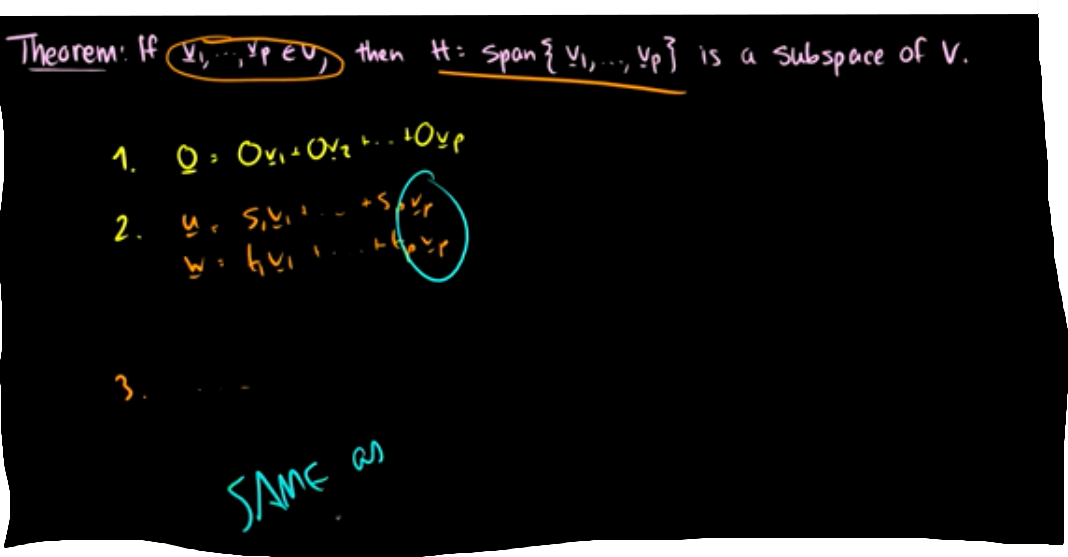 Theorem: If v1, ..., vp ∈ V, then H = span{v1, ..., vp} is a subspace of V.
1. 0 = 0v1 + 0v2 + ... + 0vp
2. u = s1v1 + ... + spvp
w = t1v1 + ... + tpvp
3. ...
SAME as